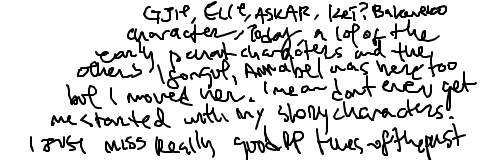 ELLE, ASKAR, KEI?
character, Today, a lot of the
early characters and the
others I forgot, Annabel was here too
but I moved her. I mean dont even get
me started with my story characters.
I just miss really good times of the past